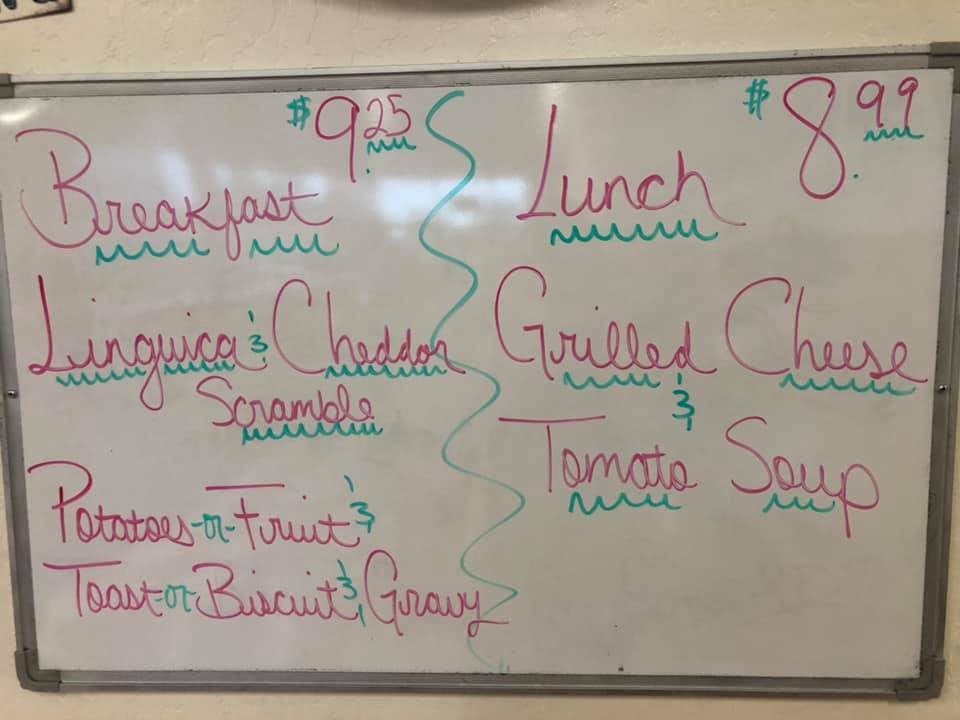 $9.25
Breakfast
Linguica & Cheddar
Scramble
Potatoes -or- Fruit &
Toast -or- Biscuit & Gravy
$8.99
Lunch
Grilled Cheese
&
Tomato Soup